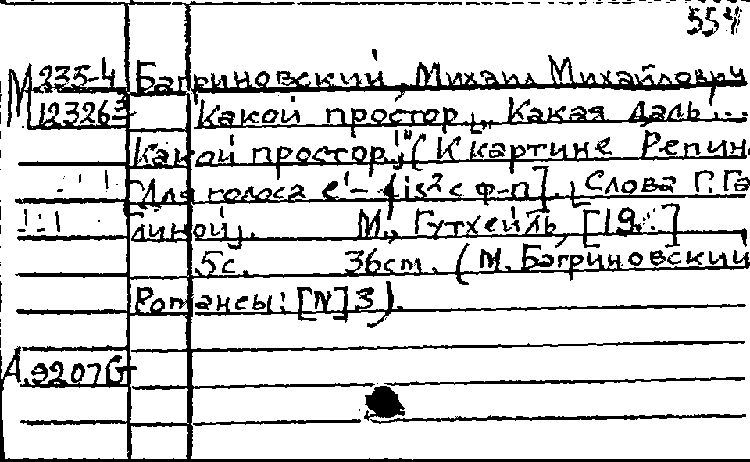 554
М 235-4 Багриновский, Михаил Михайлович
123263 Какой простор... Какая даль...
Какой простор!" (К картине Репин
Для голоса e¹-fis² с ф-п]. [Слова Г. Га
линой]. М., Гутхейль, [19 ]
5с. 36cm. (М. Багриновский
Романсы: [N] 3).
А.9207G